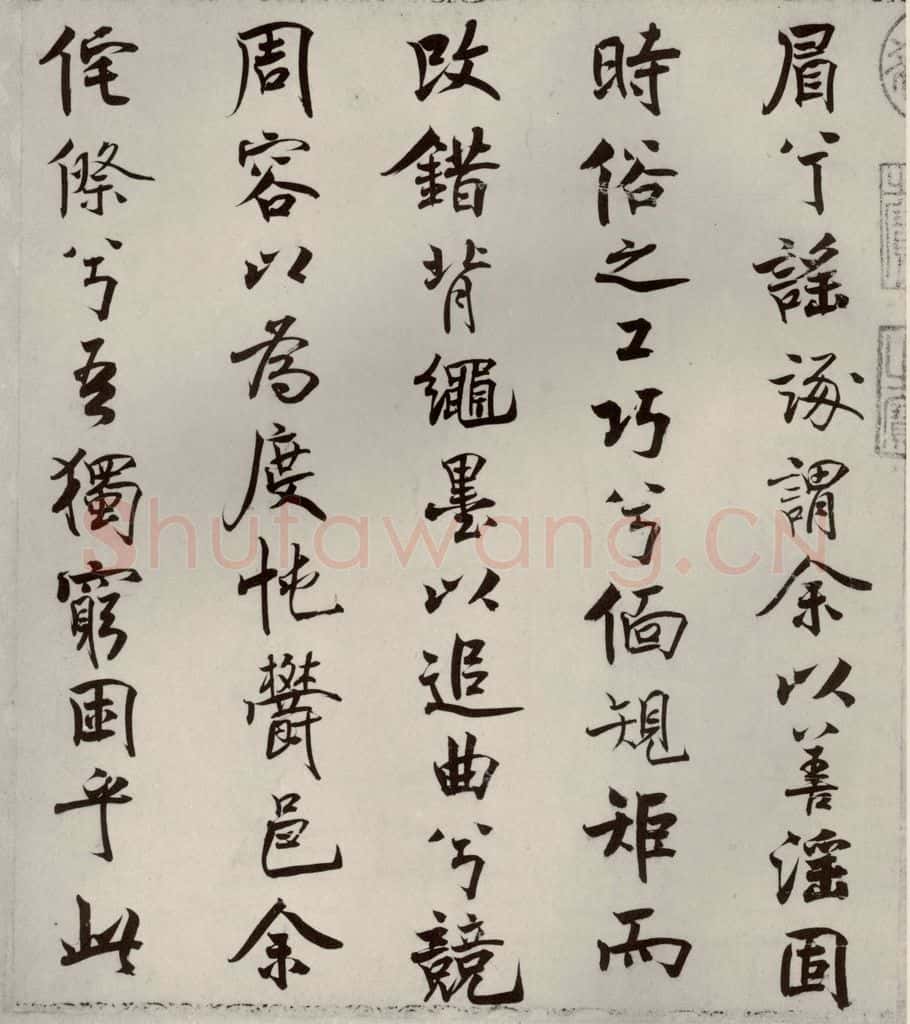 眉兮謡諑謂余以善淫固
時俗之工巧兮偭規矩而
改錯背繩墨以追曲兮競
周容以為度忳鬱邑余
侘傺兮吾獨窮困乎此
Shufawang.CN